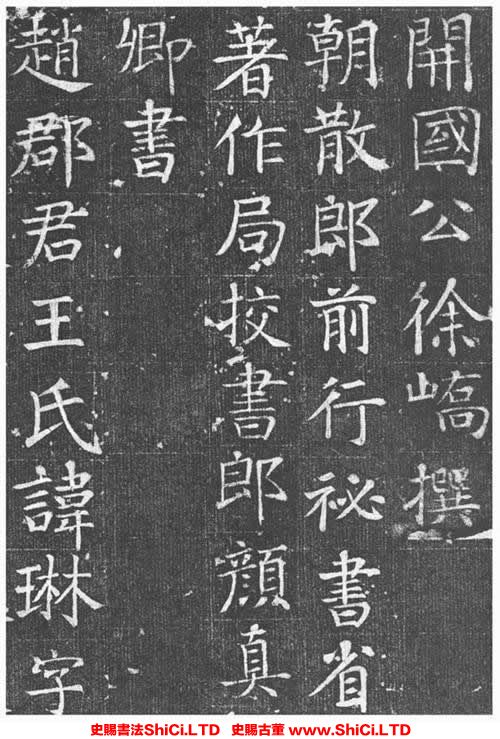 開國公徐嶠撰
朝散郎前行祕書省
著作局校書郎顏真
卿書
趙郡君王氏諱琳字
史賜書法ShiCi.LTD 史賜古董 www.ShiCi.LTD